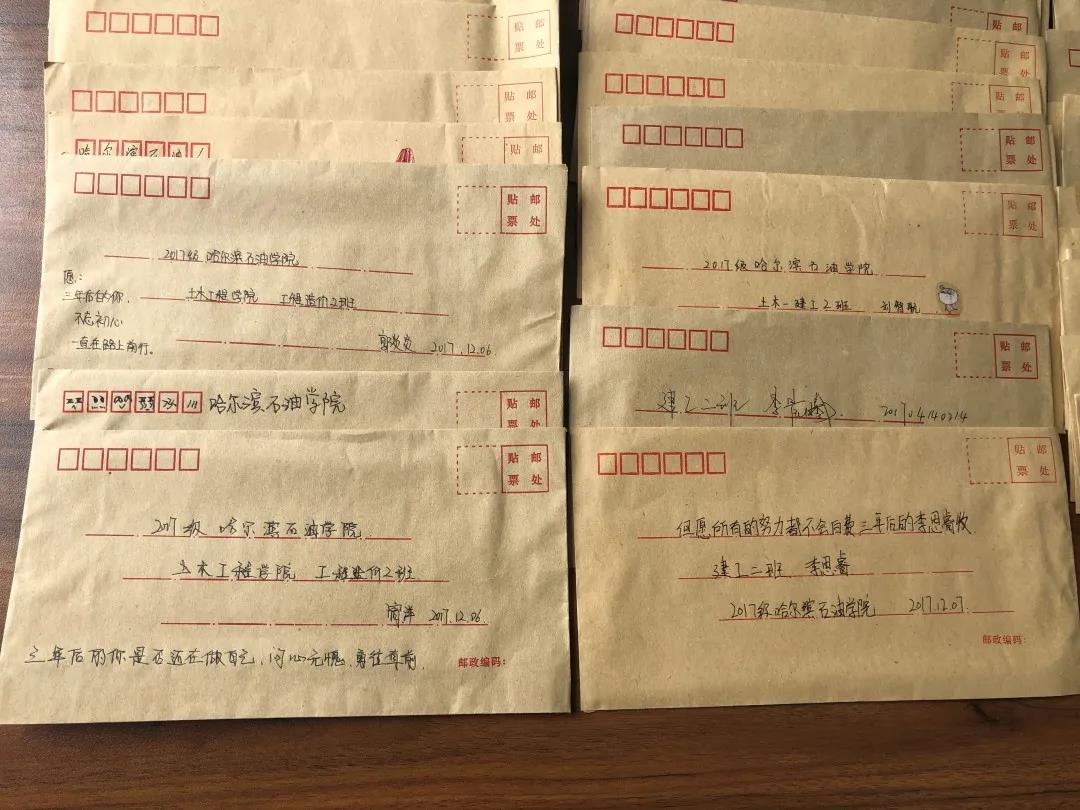 贴 邮
票 处
贴 邮
票 处
哈尔滨石油
贴 邮
贴 邮
票 处
2017级哈尔滨石油学院
愿:
三年后的你,
土木工程学院 工程造价2班
不忘初心
一直在路上前行。
2017.12.06
哈尔滨石油学院
贴 邮
票 处
贴 邮
票 处
2017级 哈尔滨石油学院
土木工程学院 工程造价2班
2017.12.06
三年后的你是否还在做自己,问心无愧,
邮政编码:
贴 邮
贴 邮
票 处
贴 邮
贴 邮
票 处
贴 邮
票 处
2017级哈尔滨石油学院
土木-建工2班 刘智航
贴 邮
票 处
建工二班 李
201704140214
贴 邮
票 处
但愿所有的努力都不会白费三年后的李思睿收
建工二班 李思睿
2017级哈尔滨石油学院 2017.12.07.
邮政编码: